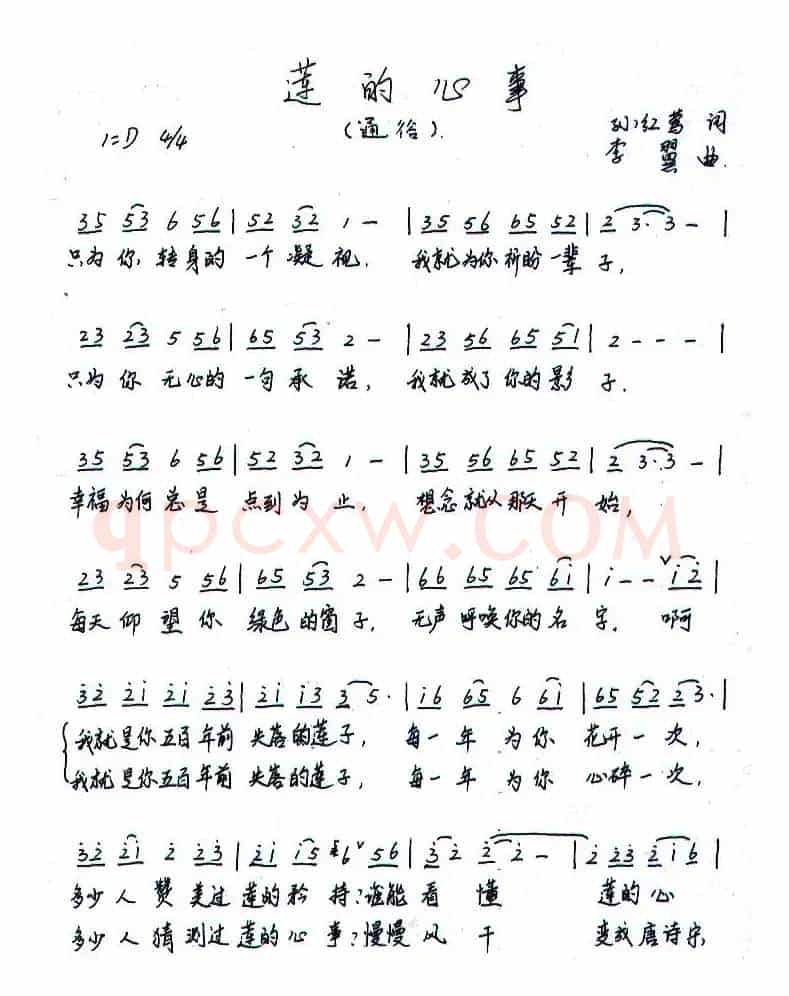 莲的心事
(通俗).
1=D 4/4
孙红莺 词
李翼 曲.
35 53 6 56 | 52 32 1 - | 35 56 65 52 | 2 3·3 - |
只为你,转身的一个凝视, 我就为你祈盼一辈子,
23 23 5 56 | 65 53 2 - | 23 56 65 51 | 2 - - - |
只为你无心的一句承诺, 我就成了你的影子.
35 53 6 56 | 52 32 1 - | 35 56 65 52 | 2 3·3 - |
幸福为何总是点到为止, 想念就从那天开始,
qpcxw.COM
23 23 5 56 | 65 53 2 - | 66 65 65 6i | i - - ∨ i2̇ |
每天仰望你绿色的窗子, 无声呼唤你的名字. 啊
3̇2̇ 2̇i 2̇i 2̇3̇ | 2̇i i3 3 5· | i6 65 6 6i | 65 52 2 3· |
我就是你五百年前失落的莲子, 每一年为你花开一次,
我就是你五百年前失落的莲子, 每一年为你心碎一次,
3̇2̇ 2̇i 2̇ 2̇3̇ | 2̇i i5 #6 ∨ 56 | 3̇2̇ 2̇·2̇ - | 2̇ 2̇3̇ 2̇i6 |
多少人赞美过莲的矜持?谁能看懂 莲的心
多少人猜测过莲的心事?慢慢风干 变成唐诗宋